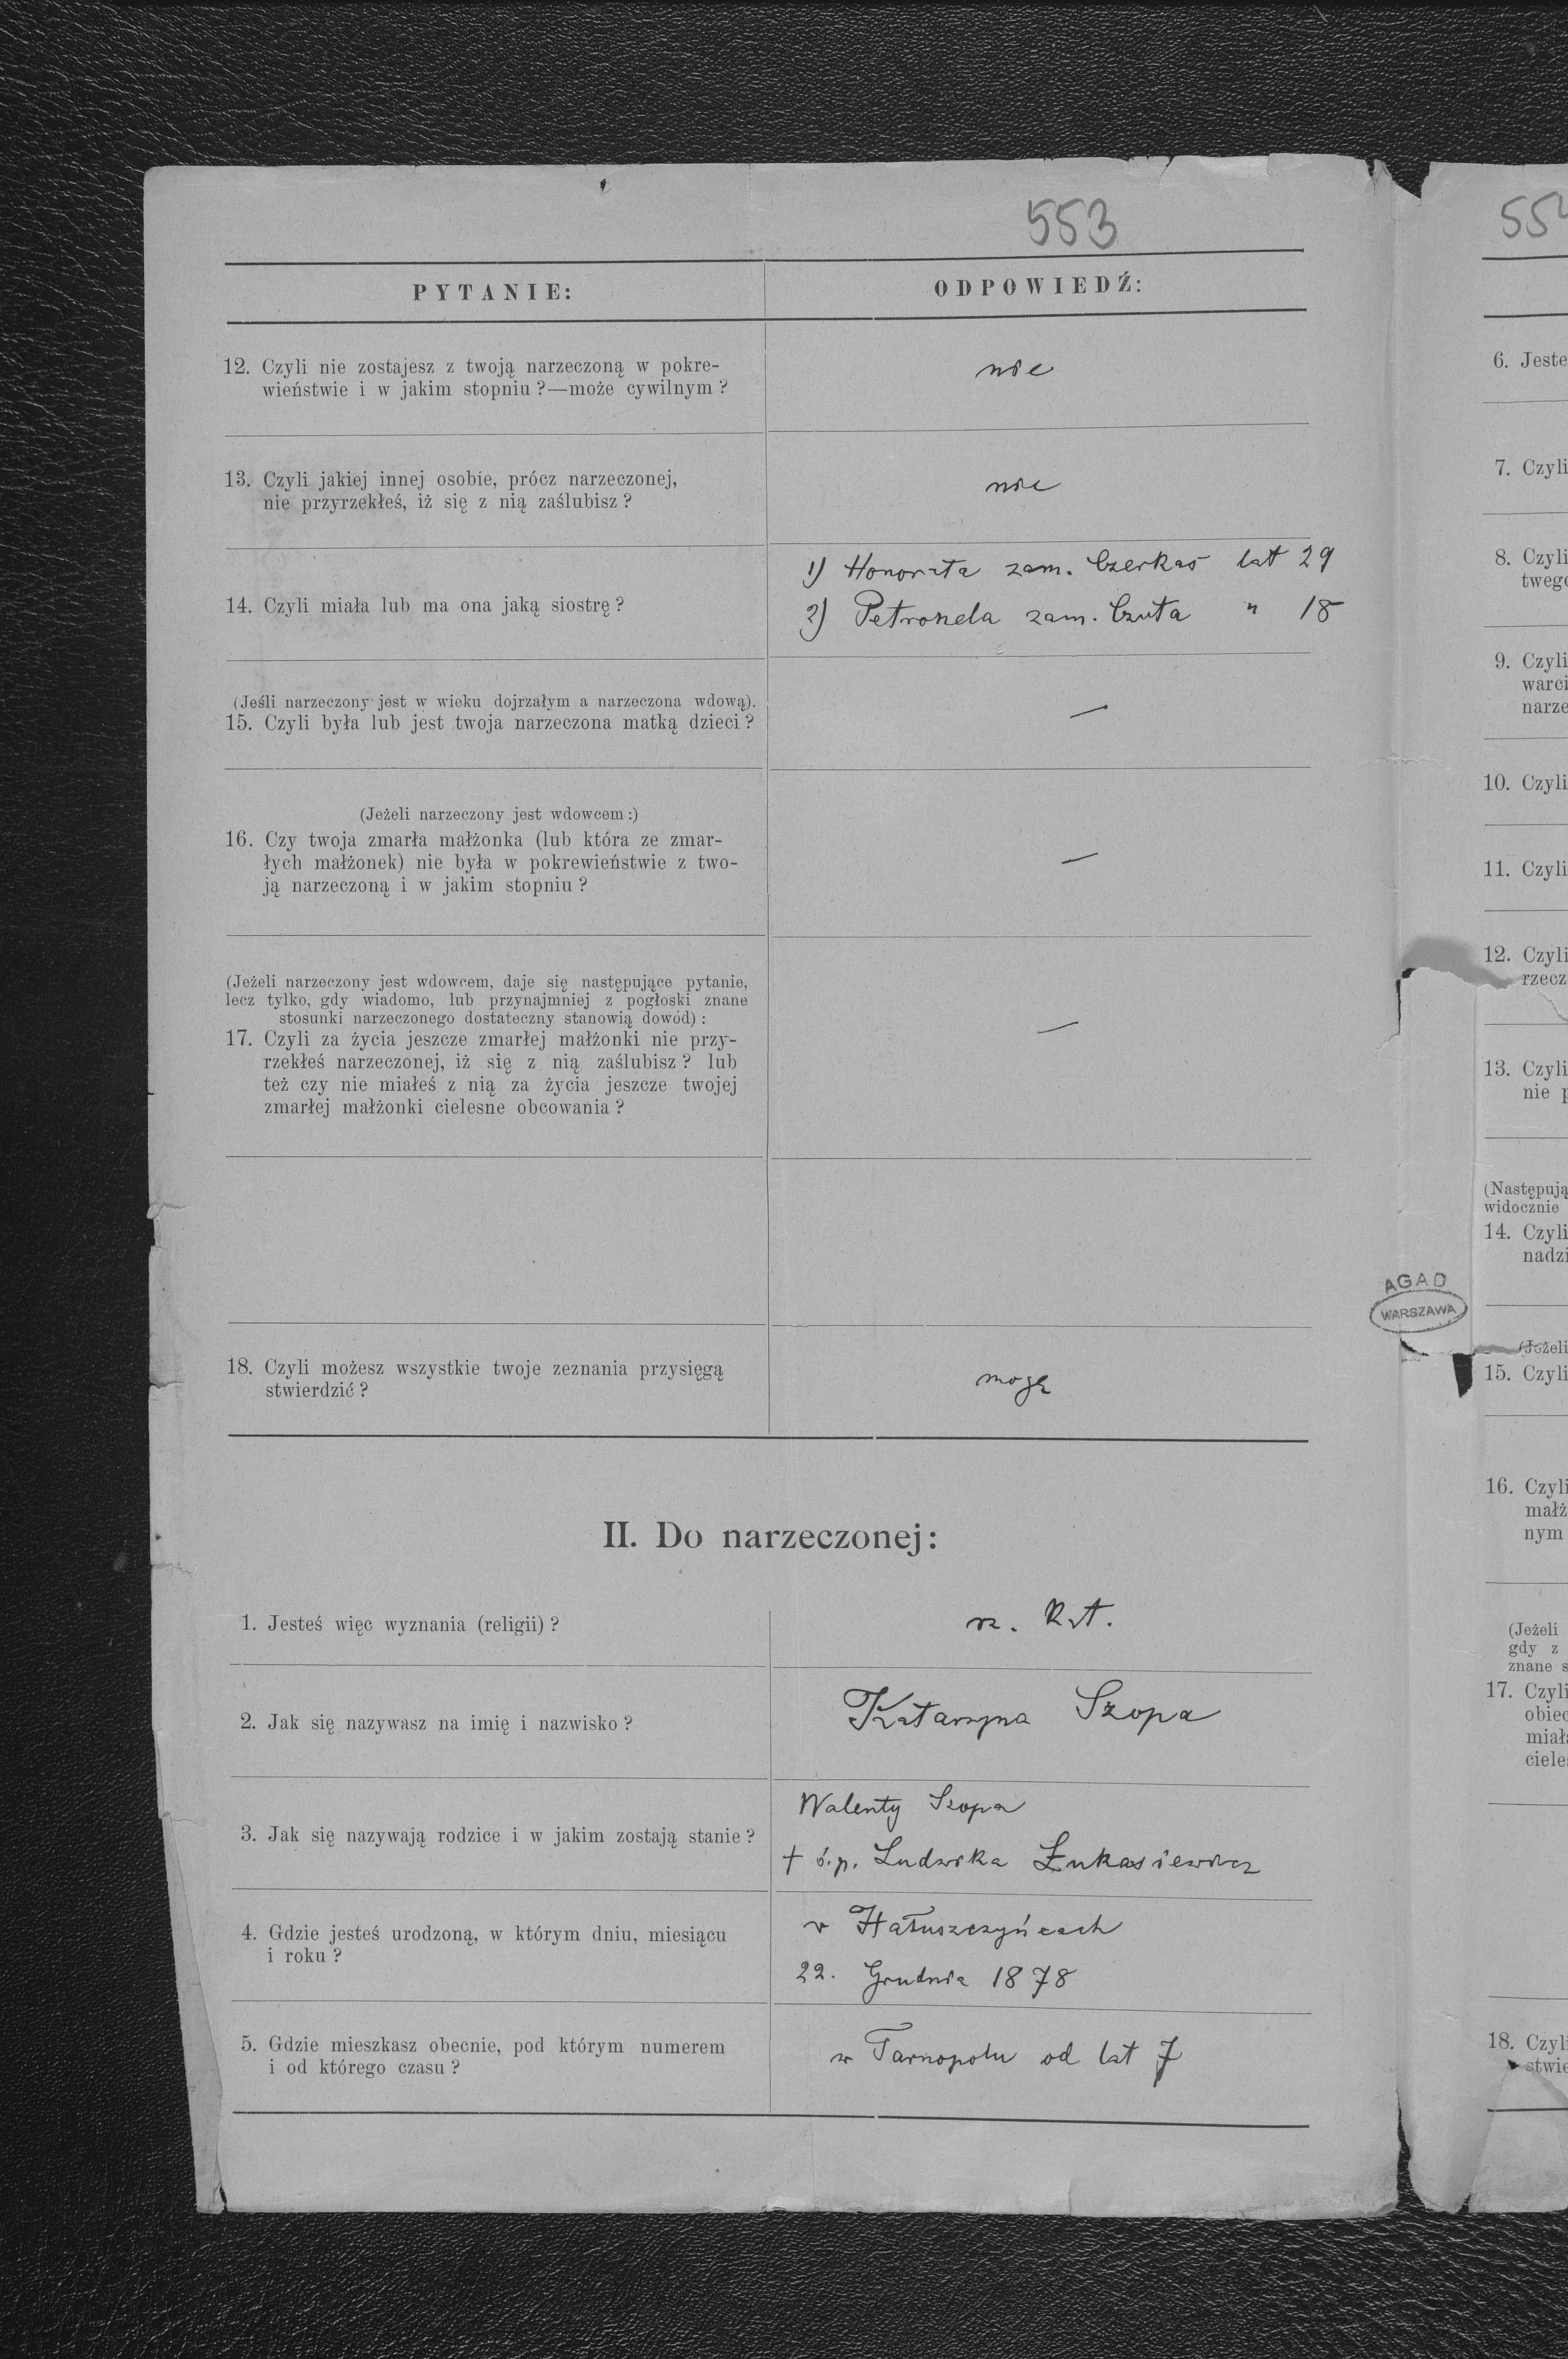 553
PYTANIE:
ODPOWIEDŹ:
12. Czyli nie zostajesz z twoją narzeczoną w pokre-
wieństwie i w jakim stopniu ?—może cywilnym ?
nie
13. Czyli jakiej innej osobie, prócz narzeczonej,
nie przyrzekłeś, iż się z nią zaślubisz ?
nie
14. Czyli miała lub ma ona jaką siostrę ?
1) Honorata zam. Czerkas lat 29
2) Petronela zam. Czuta " 18
(Jeśli narzeczony jest w wieku dojrzałym a narzeczona wdową).
15. Czyli była lub jest twoja narzeczona matką dzieci ?
—
(Jeżeli narzeczony jest wdowcem :)
16. Czy twoja zmarła małżonka (lub która ze zmar-
łych małżonek) nie była w pokrewieństwie z two-
ją narzeczoną i w jakim stopniu ?
—
(Jeżeli narzeczony jest wdowcem, daje się następujące pytanie,
lecz tylko, gdy wiadomo, lub przynajmniej z pogłoski znane
stosunki narzeczonego dostateczny stanowią dowód) :
17. Czyli za życia jeszcze zmarłej małżonki nie przy-
rzekłeś narzeczonej, iż się z nią zaślubisz ? lub
też czy nie miałeś z nią za życia jeszcze twojej
zmarłej małżonki cielesne obcowania ?
—
18. Czyli możesz wszystkie twoje zeznania przysięgą
stwierdzić ?
mogę
II. Do narzeczonej:
1. Jesteś więc wyznania (religii) ?
rz. kat.
2. Jak się nazywasz na imię i nazwisko ?
Katarzyna Szopa
3. Jak się nazywają rodzice i w jakim zostają stanie ?
Walenty Szopa
† ś.p. Ludwika Łukasiewicz
4. Gdzie jesteś urodzoną, w którym dniu, miesiącu
i roku ?
w Hałuszczyńcach
22. Grudnia 1878
5. Gdzie mieszkasz obecnie, pod którym numerem
i od którego czasu ?
w Tarnopolu od lat 7
AGAD
WARSZAWA
554
6. Jeste
7. Czyli
8. Czyli
twego
9. Czyli
warci
narze
10. Czyli
11. Czyli
12. Czyli
rzecz
13. Czyli
nie p
(Następują
widocznie
14. Czyli
nadzi
(Jeżeli
15. Czyli
16. Czyli
małż
nym
(Jeżeli
gdy z
znane s
17. Czyli
obiec
miała
cieles
18. Czyli
stwie